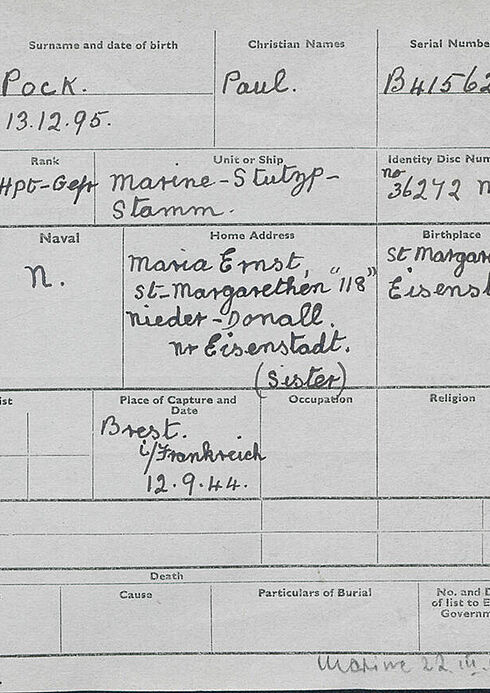 Surname and date of birth
Christian Names
Serial Numbe
Pock.
Paul.
B41562
13.12.95.
Rank
Unit or Ship
Identity Disc Num
Hpt-Gefr
Marine-Stutzp-
Stamm.
no
36272
Naval
Home Address
Birthplace
N.
Maria Ernst,
St-Margarethen "118"
Nieder-Donall.
nr Eisenstadt.
(Sister)
St Margar
Eisenst
ist
Place of Capture and
Date
Occupation
Religion
Brest.
i/Frankreich
12.9.44.
Death
Cause
Particulars of Burial
No. and D
of list to E
Governm
Marine 22 III.